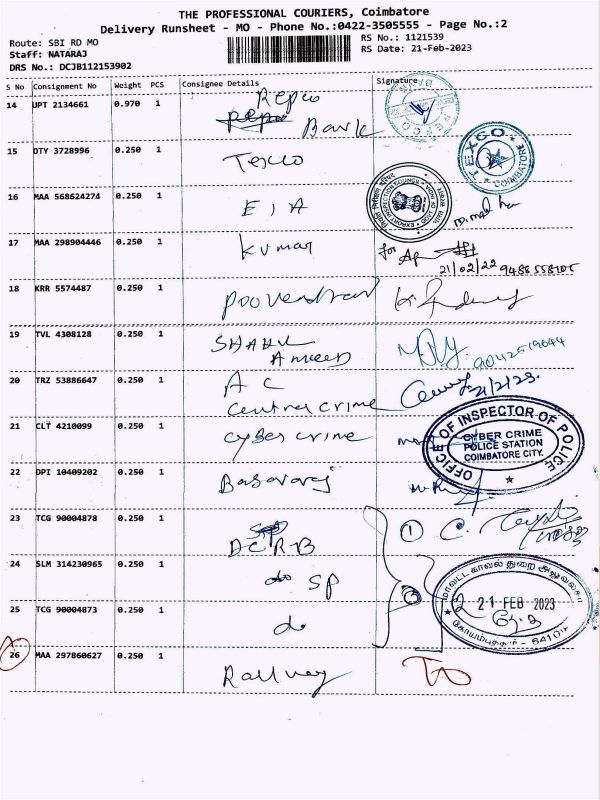 THE PROFESSIONAL COURIERS, Coimbatore
Delivery Runsheet - MO - Phone No.:0422-3505555 - Page No.:2
Route: SBI RD MO
RS No.: 1121539
Staff: NATARAJ
RS Date: 21-Feb-2023
DRS No.: DCJB112153902
S No Consignment No Weight PCS Consignee Details Signature
14 UPT 2134661 0.970 1 Repco
Bank
REPCO BANK
15 DTY 3728996 0.250 1 Texco
TEXCO COIMBATORE
16 MAA 568624274 0.250 1 EIA
EXPORT INSPECTION COUNCIL
17 MAA 298904446 0.250 1 Kumar for
21/02/22
18 KRR 5574487 0.250 1
19 TVL 4308128 0.250 1 SHAHUL
AMEED
20 TRZ 53886647 0.250 1 A C
central crime
21/2/23.
21 CLT 4210099 0.250 1 cyber crime
OFFICE OF INSPECTOR OF POLICE
CYBER CRIME
POLICE STATION
COIMBATORE CITY.
22 DPI 10409202 0.250 1 Basavaraj
23 TCG 90004878 0.250 1 DCRB
1
24 SLM 314230965 0.250 1 do SP
மாவட்ட காவல் துறை அலுவலகம்
21 FEB 2023
25 TCG 90004873 0.250 1 do
26 MAA 297860627 0.250 1 Railway